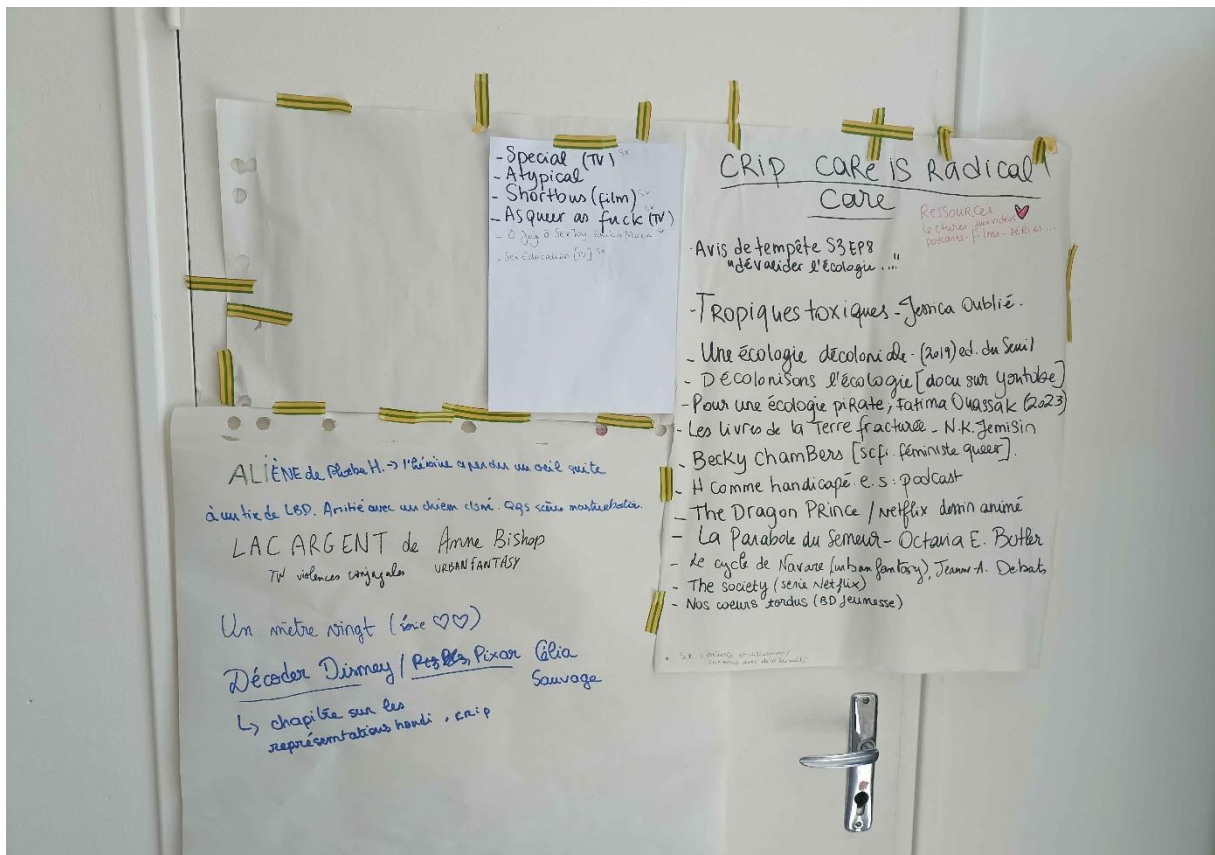 - Special (TV) sx
- Atypical
- Shortbus (film) sx
- As queer as fuck (TV)
- Sex Education [TV] sx
CRIP CARE IS RADICAL
CARE
RESSOURCES
lectures
podcasts - films - séries ...
- Avis de tempête S3 EP8
"dévalider l'écologie ..."
- Tropiques toxiques - Jessica Oublié.
- Une écologie décoloniale - (2019) ed. du Seuil
- Décolonisons l'écologie [docu sur Youtube]
- Pour une écologie piRate, Fatima Ouassak (2023)
- Les livres de la Terre fracturée - N.K. Jemisin
- Becky chamBers [scfi féministe queer].
- H comme handicapé.e.s : podcast
- The Dragon PRince / Netflix dessin animé
- La Parabole du Semeur - Octavia E. Butler
- Le cycle de Navarre (urban fantasy), Jeanne A. Debats
- The society (série Netflix)
- Nos coeurs tordus (BD Jeunesse)
ALIÈNE de Phoebe H. → l'héroïne a perdu un oeil suite
à un tir de LBD. Amitié avec un chien cloné. Qqs scènes masturbation.
LAC ARGENT de Anne Bishop
TW violences conjugales URBAN FANTASY
Un mètre vingt (série ♡♡)
Décoder Disney / Pixar Célia
Sauvage
↳ chapitre sur les
représentations handi, crip